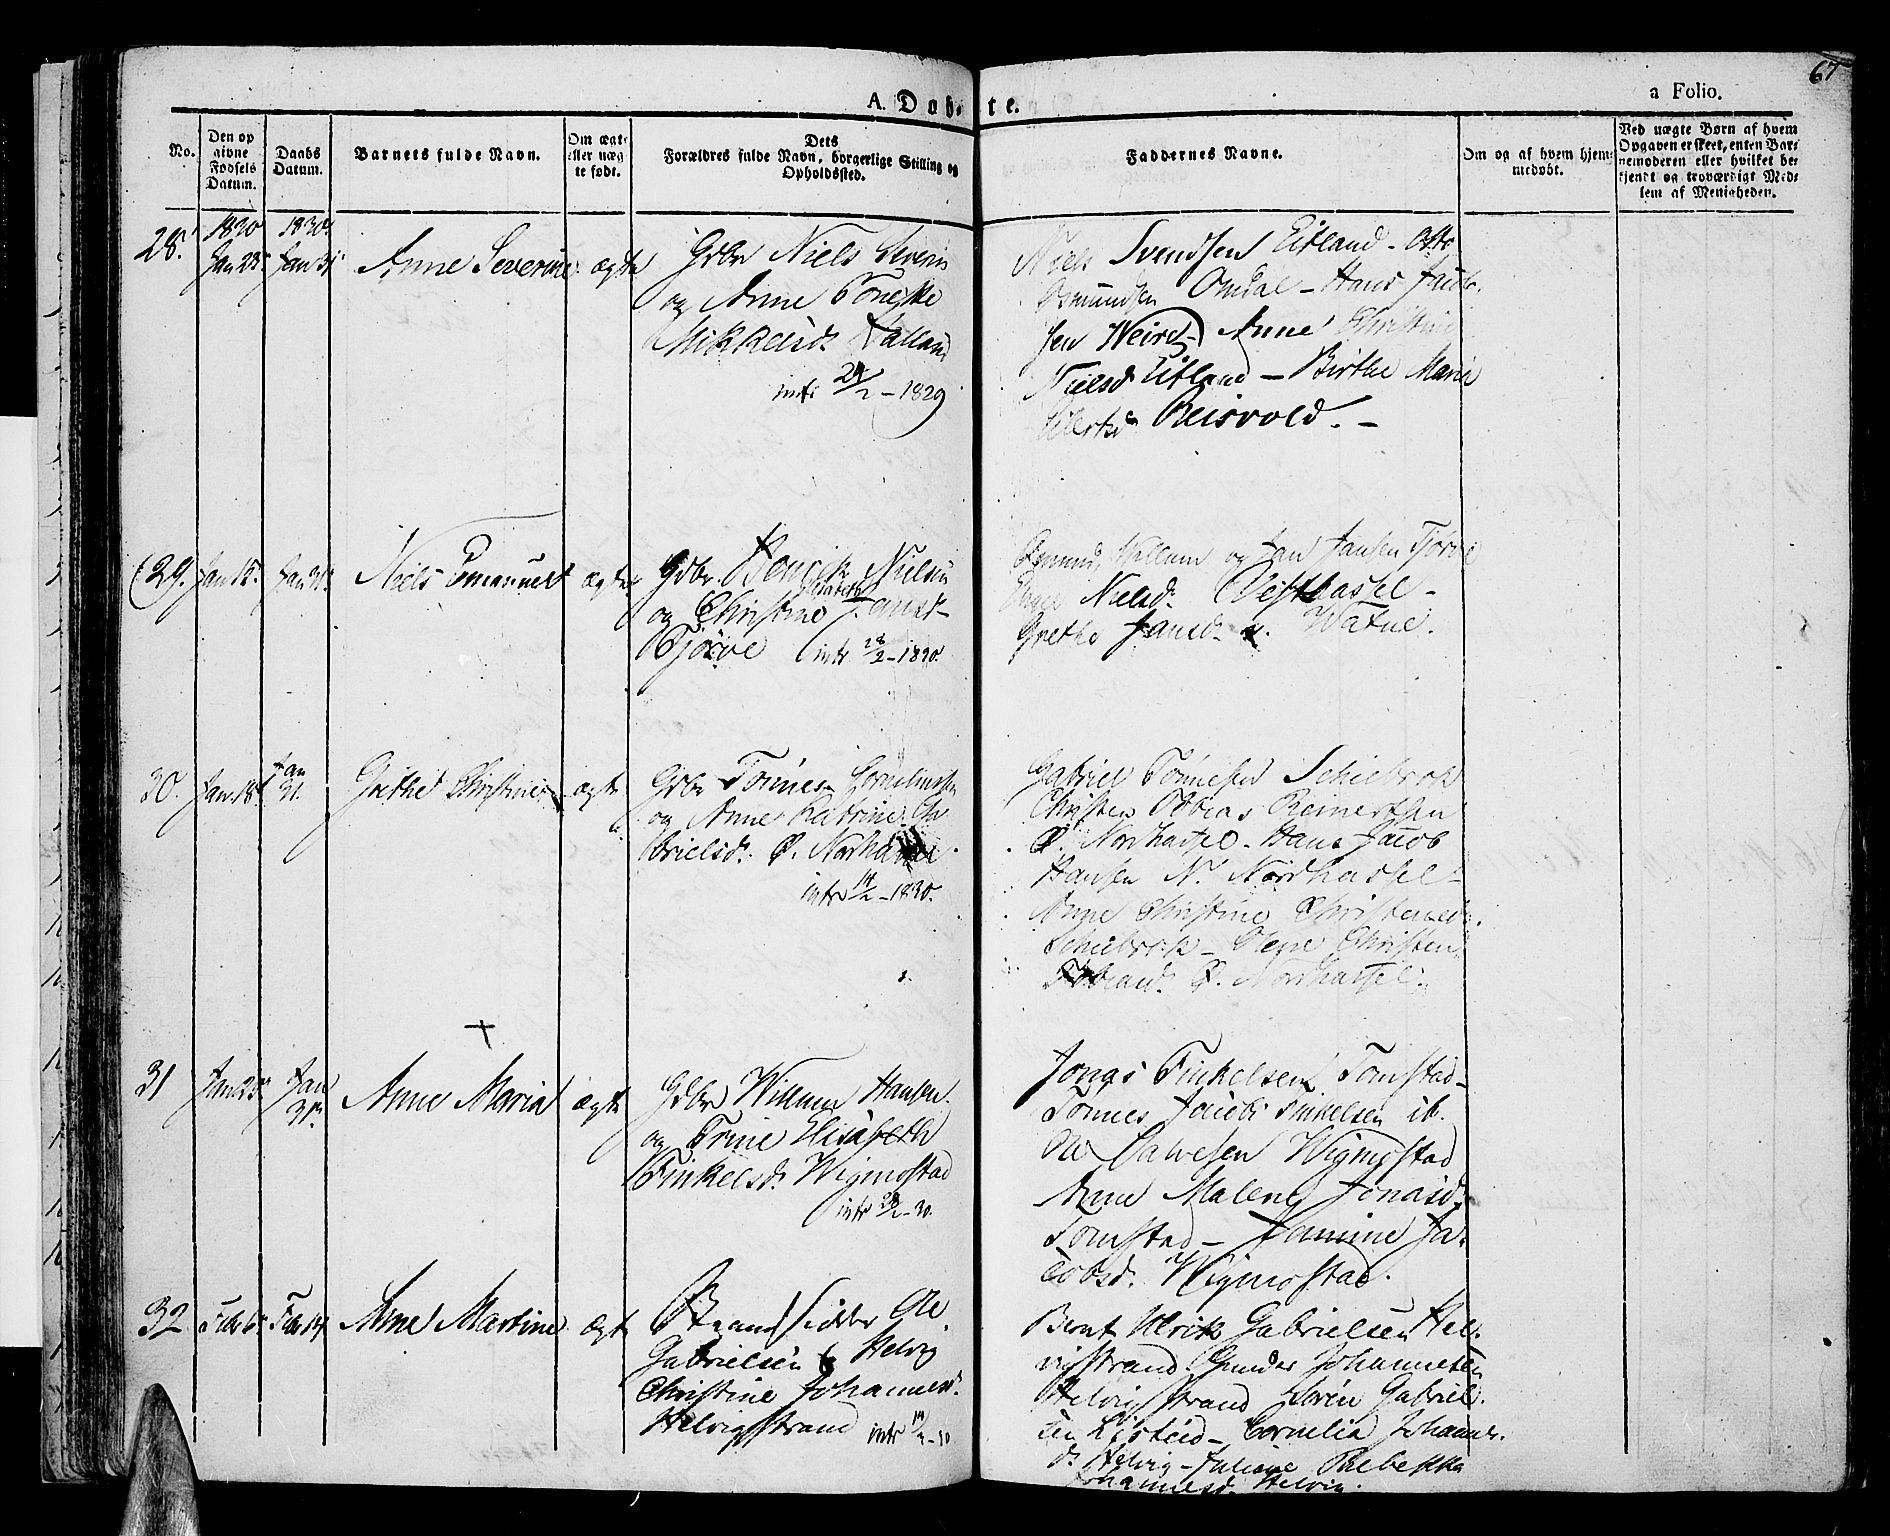 67
A. Døb- te.
a Folio.
No.
Den op
givne
Fødsels
Datum.
Daabs
Datum.
Barnets fulde Navn.
Om ægte
eller uæg
te født.
Dets
Forældres fulde Navn, borgerlige Stilling og
Opholdssted.
Faddernes Navne.
Om og af hvem hjem-
medøbt.
Ved uægte Børn af hvem
Opgaven er skeet, enten Bar-
nemoderen eller hvilket be-
kjendt og troværdigt Med-
lem af Menigheden.
28.
1830
Jan 23
1830
Jan 31
Anne Severine
ægte
Gdbr Niels Severin
og Anne Tonette
Mikkelsd. Kalland
intr 24/2 - 1829
Niels Svendsen Eitland - Otto
Osmundsen Omdal - Hans Jacob-
sen Weire - Anne Christine
Nielsd Eitland - Birthe Marie
Eilertsd Reisvold. -
29.
Jan 15.
Jan 31.
Niels Emanuel
ægte
Gdbr. Henrik Nielsen
og Christine Jansd-
Tjörve intr 28/2 - 1830.
Osmund, Willum og Jan Jansen Tjörve
Nielsd. Vesthassel -
Grethe Jansd. Watne.
30.
Jan. 18
Jan
31.
Grethe Christine
ægte
Gdbr Tönnes Corneliussen
og Anne Katrine Ga
brielsd. Ø. Norhassel
intr 14/2 - 1830.
Gabriel Tönnesen Schiebrok
Christen Tobias Reinertsen
Ø. Nordhassel - Hans Jacob
Hansen N. Nordhassel -
Anne Christine Christensd.
Schiebrok - Christen
Tobiasd. Ø. Nordhassel.
31
Jan 23
Jan
31.
Anne Maria
ægte
Gdbr Willum Hansen
og Trine Elisabeth
Tinkelsd. Wigmostad
intr 28/2 - 30.
Jonas Tinkelsen Tomstad -
Tönnes Jacob Tinkelsen ib.
Ole Salvesen Wigmostad
Anne Malene Jonasd.
Tomstad - Jamine Ja-
cobsd. Wigmostad.
32
Febr 6
Febr 14
Anne Martine
ægte
Strandsidder Ole
Gabrielsen & Helvig
Christine Johannesd.
Helvigstrand intr 14/3 - 30
Bernt Ulrik Gabrielsen Hel-
vigstrand Gunder Johannesen
Helvigstrand Sörén Gabriel-
sen Listeid - Cornelia Johannes-
d. Helvig - Juliane Rebekka
Johannesd. Helvig.